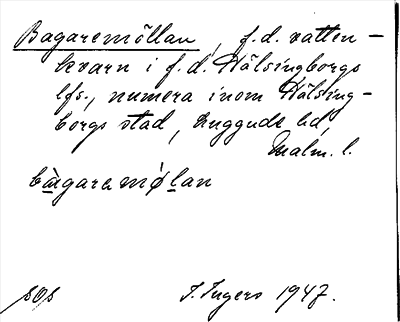 Bagaremöllan, f.d. vatten-
kvarn i f.d. Hälsingborgs
lfs., numera inom Hälsing-
borgs stad, Luggude hd,
Malm. l.
bàgaremǿlan
sOs I. Ingers 1947.